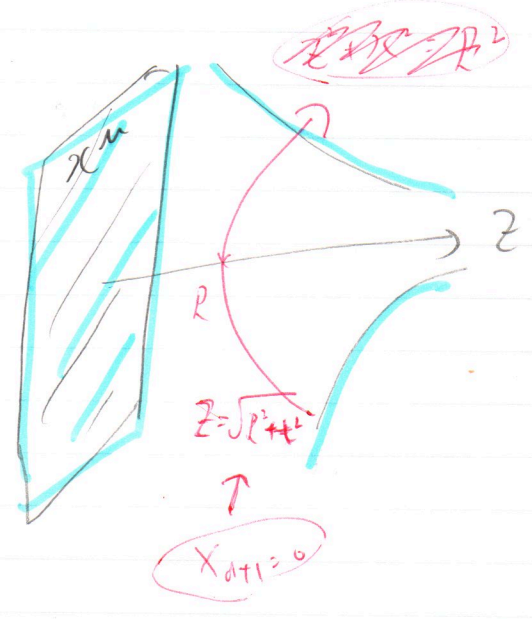 x^μ
Z
ℓ
Z=√(ℓ²+t²)
↑
X_{d+1}=0